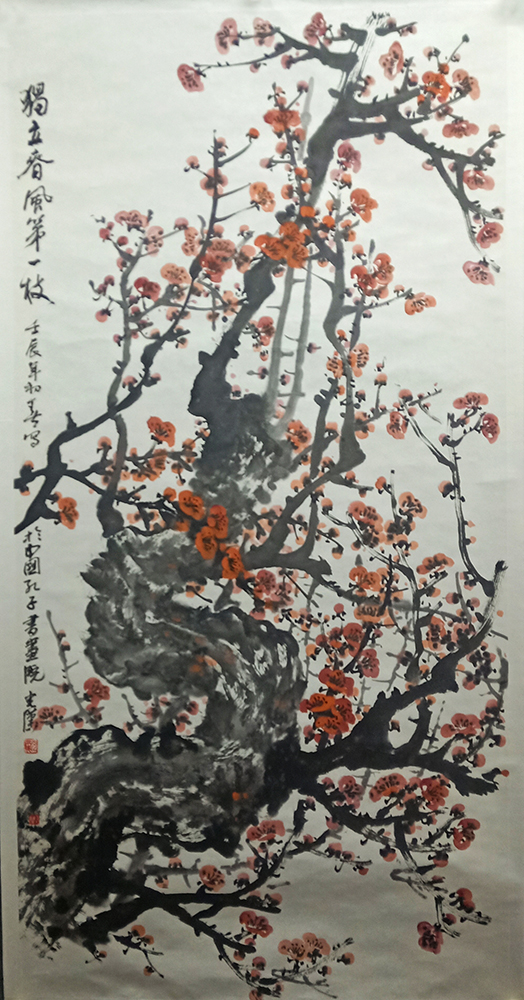 獨立春風第一枝
壬辰年初春写
於中國孔子書画院